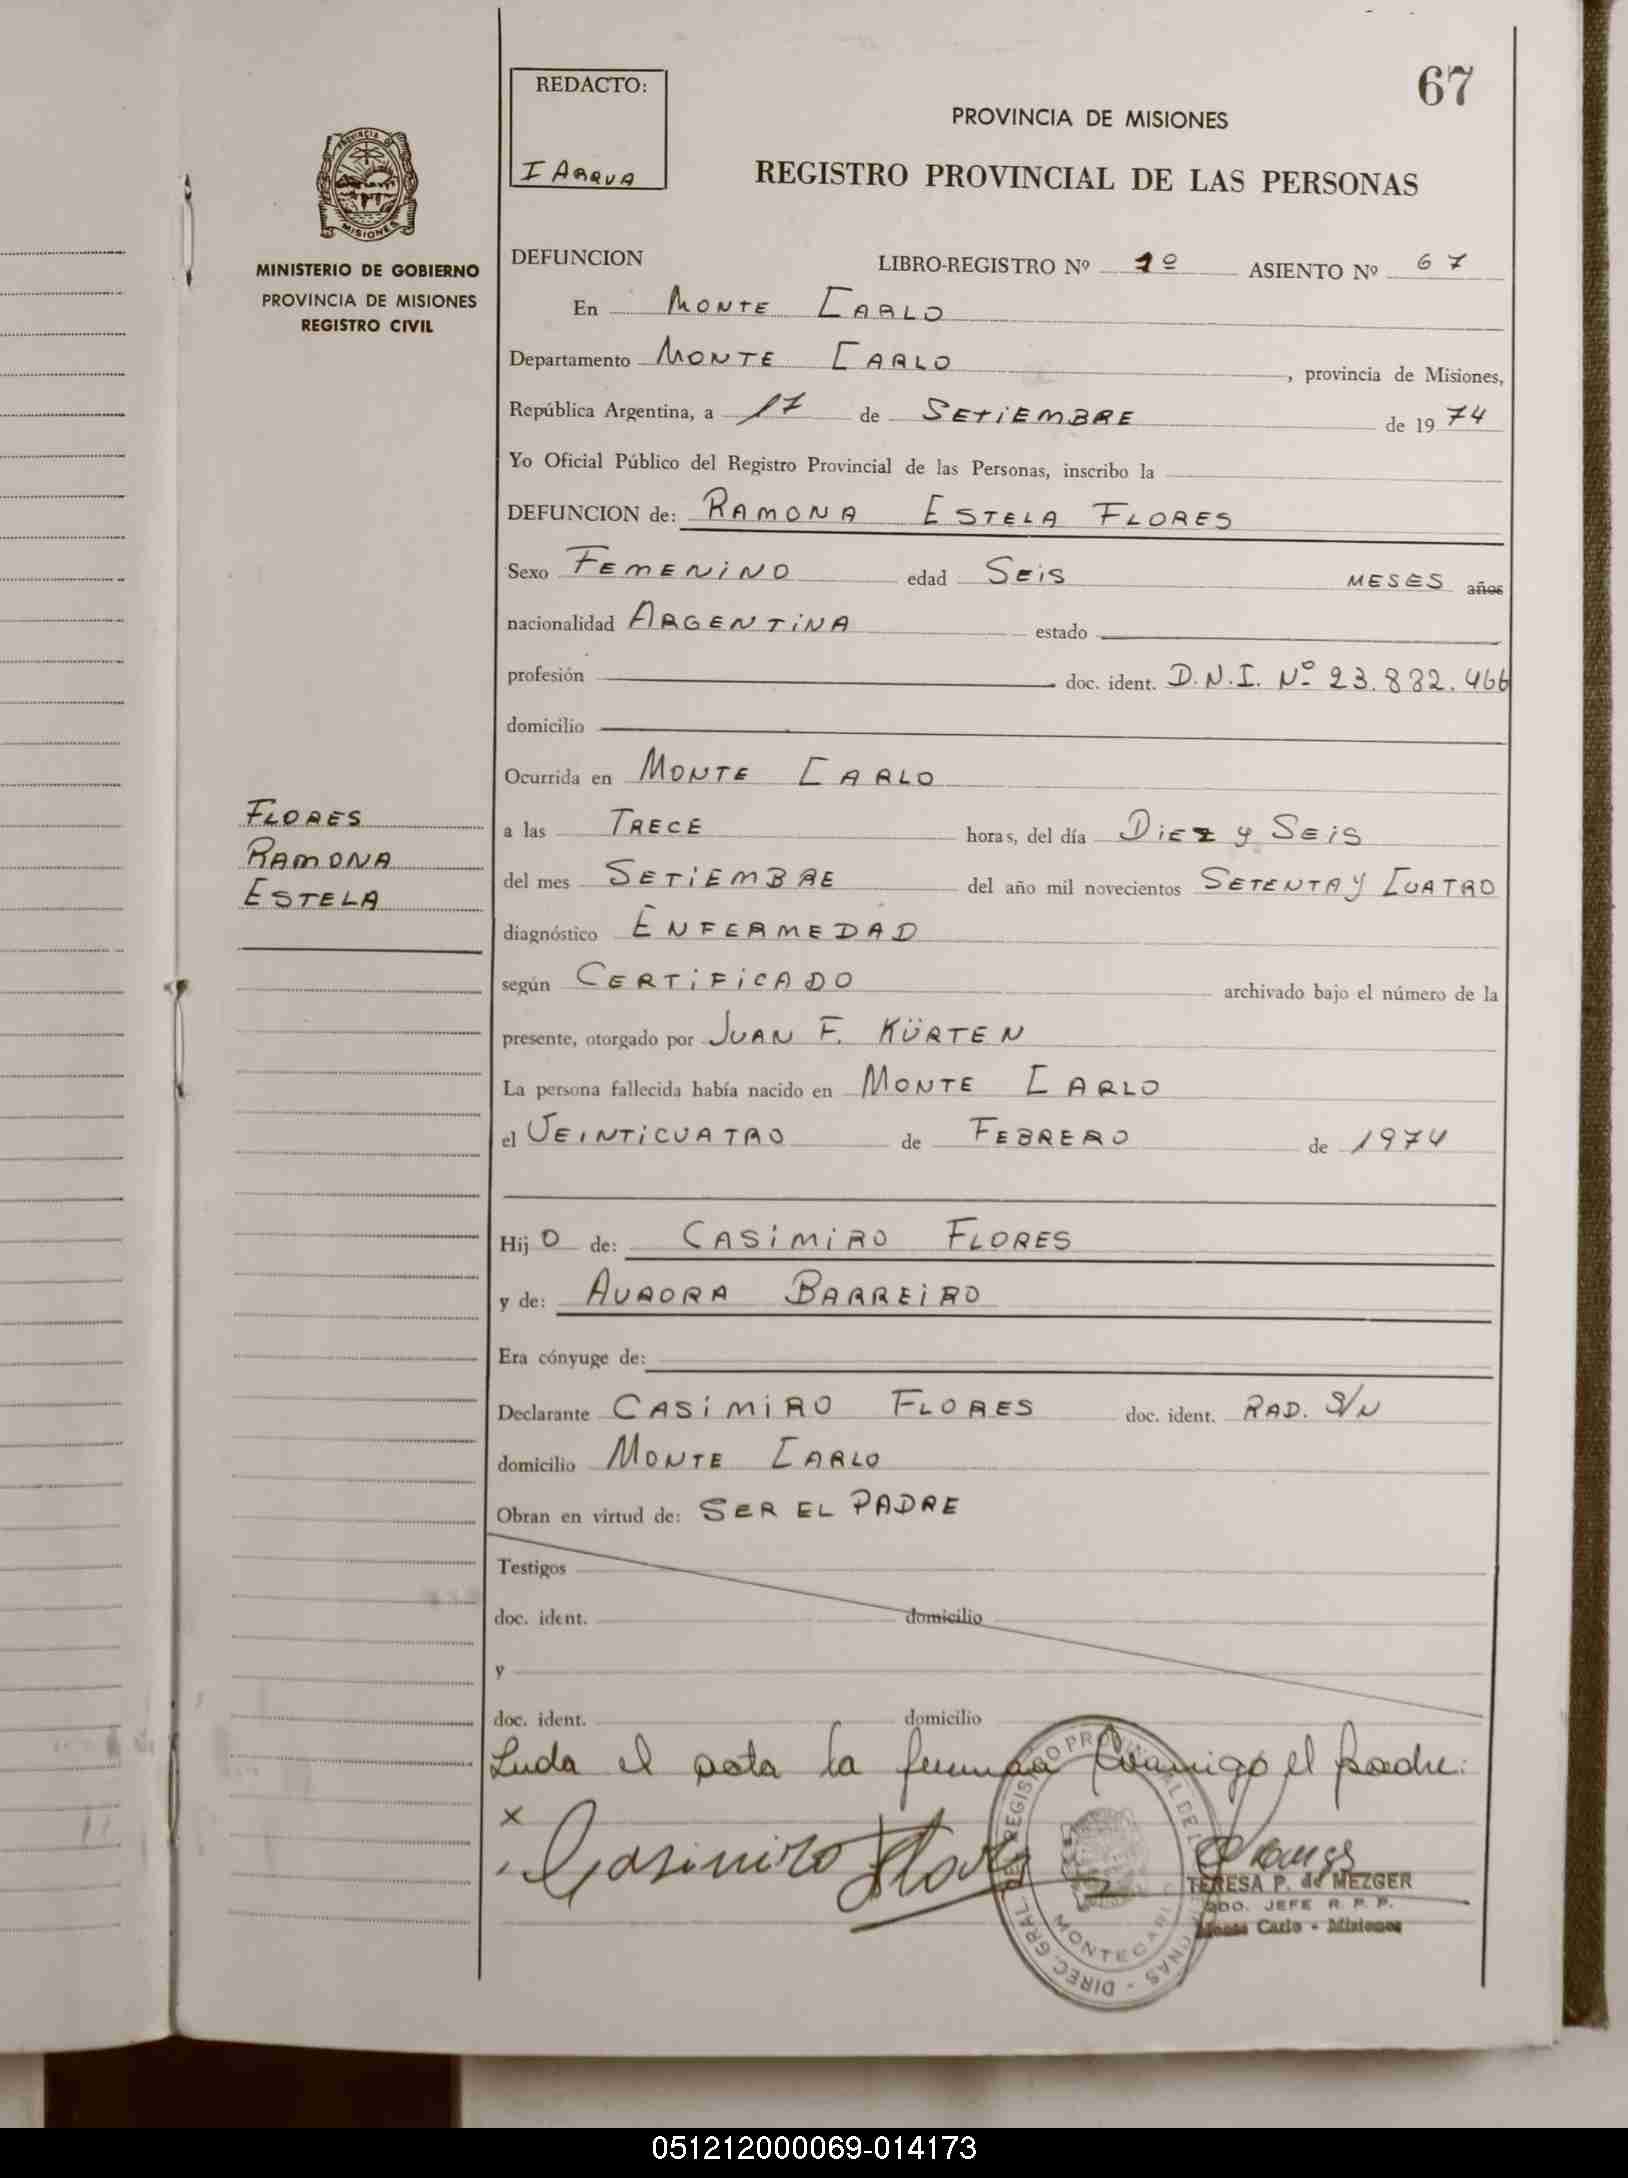 67
REDACTO:
I ARRUA
PROVINCIA DE MISIONES
REGISTRO PROVINCIAL DE LAS PERSONAS
PROVINCIA
MISIONES
MINISTERIO DE GOBIERNO
PROVINCIA DE MISIONES
REGISTRO CIVIL
DEFUNCION LIBRO-REGISTRO Nº 1º ASIENTO Nº 67
En MONTE CARLO
Departamento MONTE CARLO, provincia de Misiones,
República Argentina, a 17 de SETIEMBRE de 1974
Yo Oficial Público del Registro Provincial de las Personas, inscribo la
DEFUNCION de: RAMONA ESTELA FLORES
Sexo FEMENINO edad SEIS MESES años
nacionalidad ARGENTINA estado
profesión doc. ident. D.N.I. Nº 23.882.466
domicilio
Ocurrida en MONTE CARLO
FLORES
RAMONA
ESTELA
a las TRECE horas, del día DIEZ y SEIS
del mes SETIEMBRE del año mil novecientos SETENTA y CUATRO
diagnóstico ENFERMEDAD
según CERTIFICADO archivado bajo el número de la
presente, otorgado por JUAN F. KÜRTEN
La persona fallecida había nacido en MONTE CARLO
el VEINTICUATRO de FEBRERO de 1974
Hijo de: CASIMIRO FLORES
y de: AURORA BARREIRO
Era cónyuge de:
Declarante CASIMIRO FLORES doc. ident. RAD. S/N
domicilio MONTE CARLO
Obran en virtud de: SER EL PADRE
Testigos
doc. ident. domicilio
y
doc. ident. domicilio
el la el padre.
x
Casimiro Flores
DIREC. GRAL. DEL REGISTRO PROVINCIAL DE LAS PERSONAS
MONTECARLO
TERESA P. de MEZGER
JEFE R. P. P.
Monte Carlo - Misiones
051212000069-014173